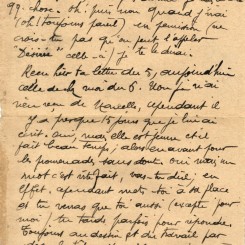 99. chose. oh! puis mon quand j'irai
(oh! toujours pareil) en permission (ne
crois-tu pas qu'on peut l'appeler
"Désirée" celle-ci) je te le dirai.
Reçu hier ta lettre du 5, aujourd'hui
celle de du 6. Non je n'ai
rien reçu de Marcelle, cependant il
y a presque 15 jours que je lui ai
écrit. oui, mais elle est jeune et il
fait beau temps; alors en avant pour
les promenades, sans doute, oui mais un
mot c'est vite fait, vas-tu dire; en
effet, cependant mets-toi à sa place
et tu verras que toi aussi (excepté pour
moi) tu tardes parfois pour répondre.
Toujours au dessin et du travail par